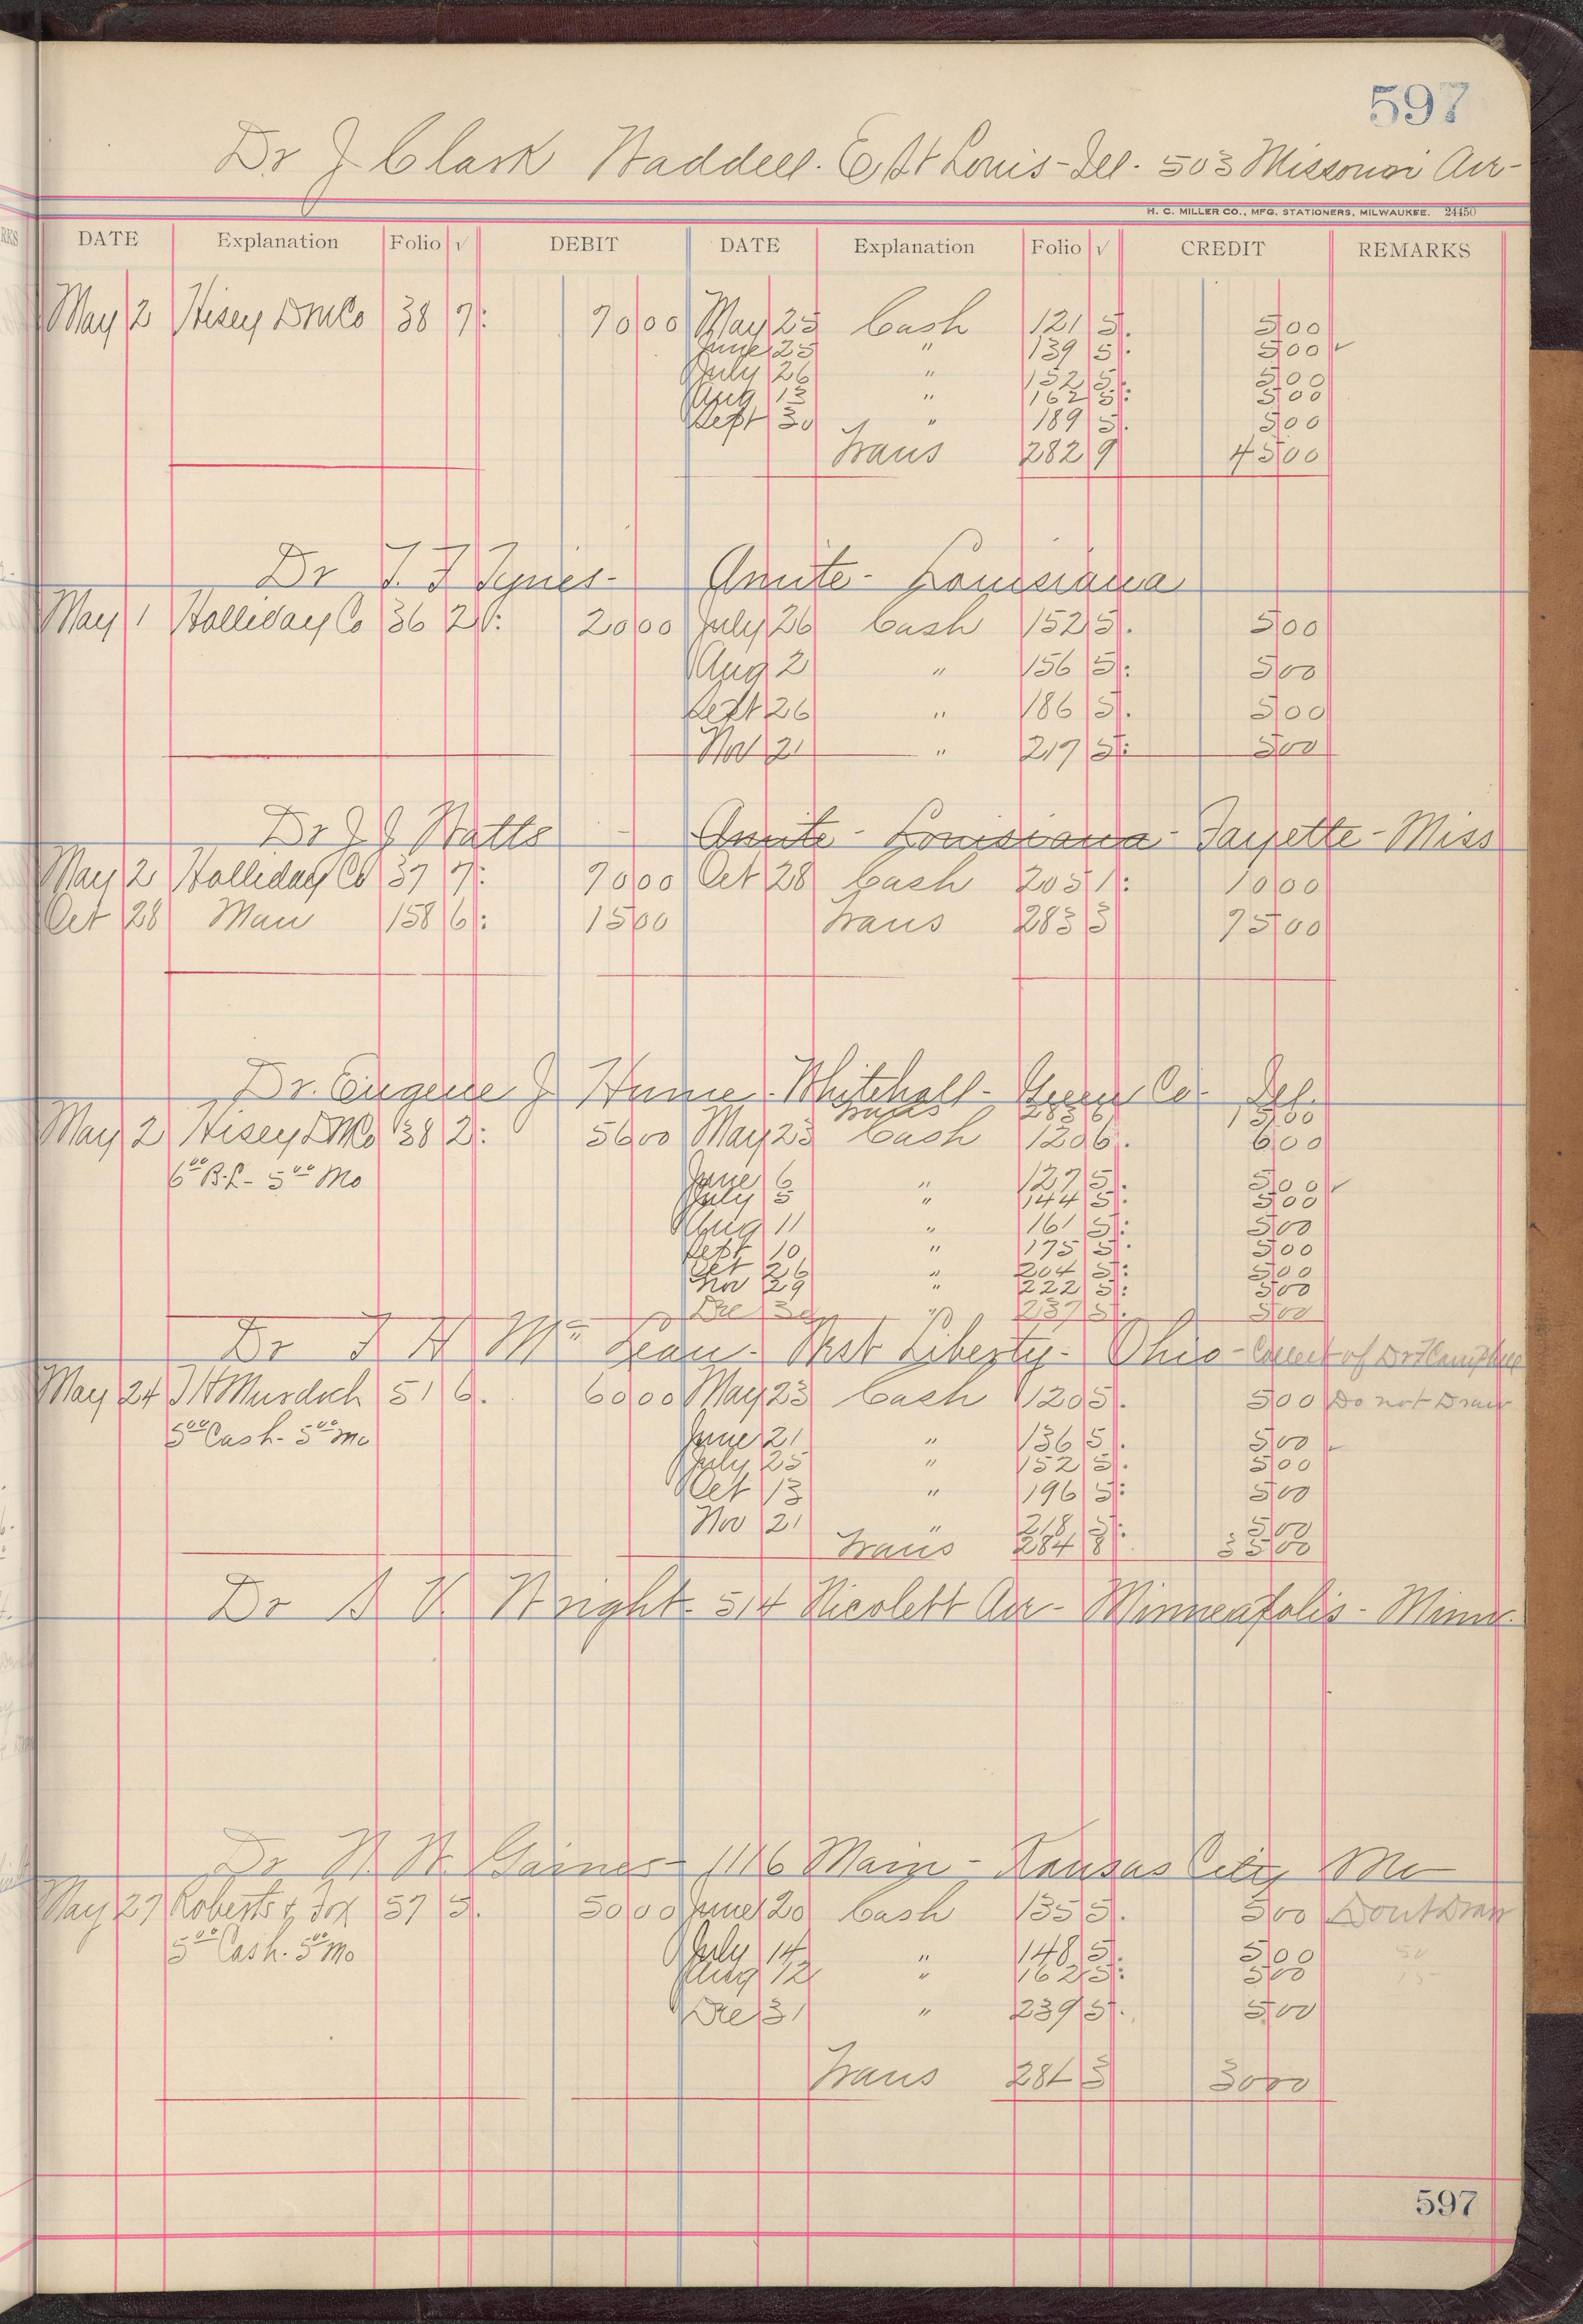 597
Dr J Clark Waddell. E St Louis - Ill. 503 Missouri Av-
H. C. MILLER CO., MFG. STATIONERS, MILWAUKEE. 24450
DATE Explanation Folio √ DEBIT DATE Explanation Folio √ CREDIT REMARKS
May 2 Hisey DM Co 38 7: 70 00 May 25 Cash 121 5. 5 00
June 25 " 139 5: 5 00 ✓
July 26 " 152 5: 5 00
Aug 13 " 162 5: 5 00
Sept 30 " 189 5. 5 00
Trans 282 9 45 00
Dr T. F Tynes- Amite - Louisiana
May 1 Halliday Co 36 2: 20 00 July 26 Cash 152 5. 5 00
Aug 2 " 156 5: 5 00
Sept 26 " 186 5. 5 00
Nov 21 " 217 5: 5 00
Dr J J Watts - Amite - Louisiana - Fayette - Miss
May 2 Halliday Co 37 7: 70 00 Oct 28 Cash 205 1: 10 00
Oct 28 Man 158 6: 15 00 Trans 283 3 75 00
Dr. Eugene J Hume - Whitehall - Green Co - Ill.
Trans 283 6 15 00
May 2 Hisey DM Co 38 2: 56 00 May 23 Cash 120 6. 6 00
6 00 B.L - 5 00 Mo June 6 " 127 5. 5 00 ✓
July 5 " 144 5: 5 00
Aug 11 " 161 5: 5 00
Sept 10 " 175 5. 5 00
Oct 26 " 204 5: 5 00
Nov 29 " 222 5: 5 00
Dec 30 " 237 5. 5 00
Dr T H Mc Lean - West Liberty - Ohio - Collect of Dr
May 24 J H Murdoch 51 6. 60 00 May 23 Cash 120 5. 5 00 Do not Draw
5 00 Cash - 5 00 Mo June 21 " 136 5. 5 00 ✓
July 25 " 152 5. 5 00
Oct 13 " 196 5: 5 00
Nov 21 " 218 5: 5 00
Trans 284 8 35 00
Dr A V. Wright - 514 Nicolett Av - Minneapolis - Minn.
Dr W. W. Gaines - 1116 Main - Kansas City Mo
May 27 Roberts & Fox 57 5. 50 00 June 20 Cash 135 5. 5 00 Dont Draw
5 00 Cash. 5 00 Mo July 14 " 148 5. 5 00
Aug 12 " 162 5: 5 00
Dec 31 " 239 5. 5 00
Trans 281 3 30 00
597